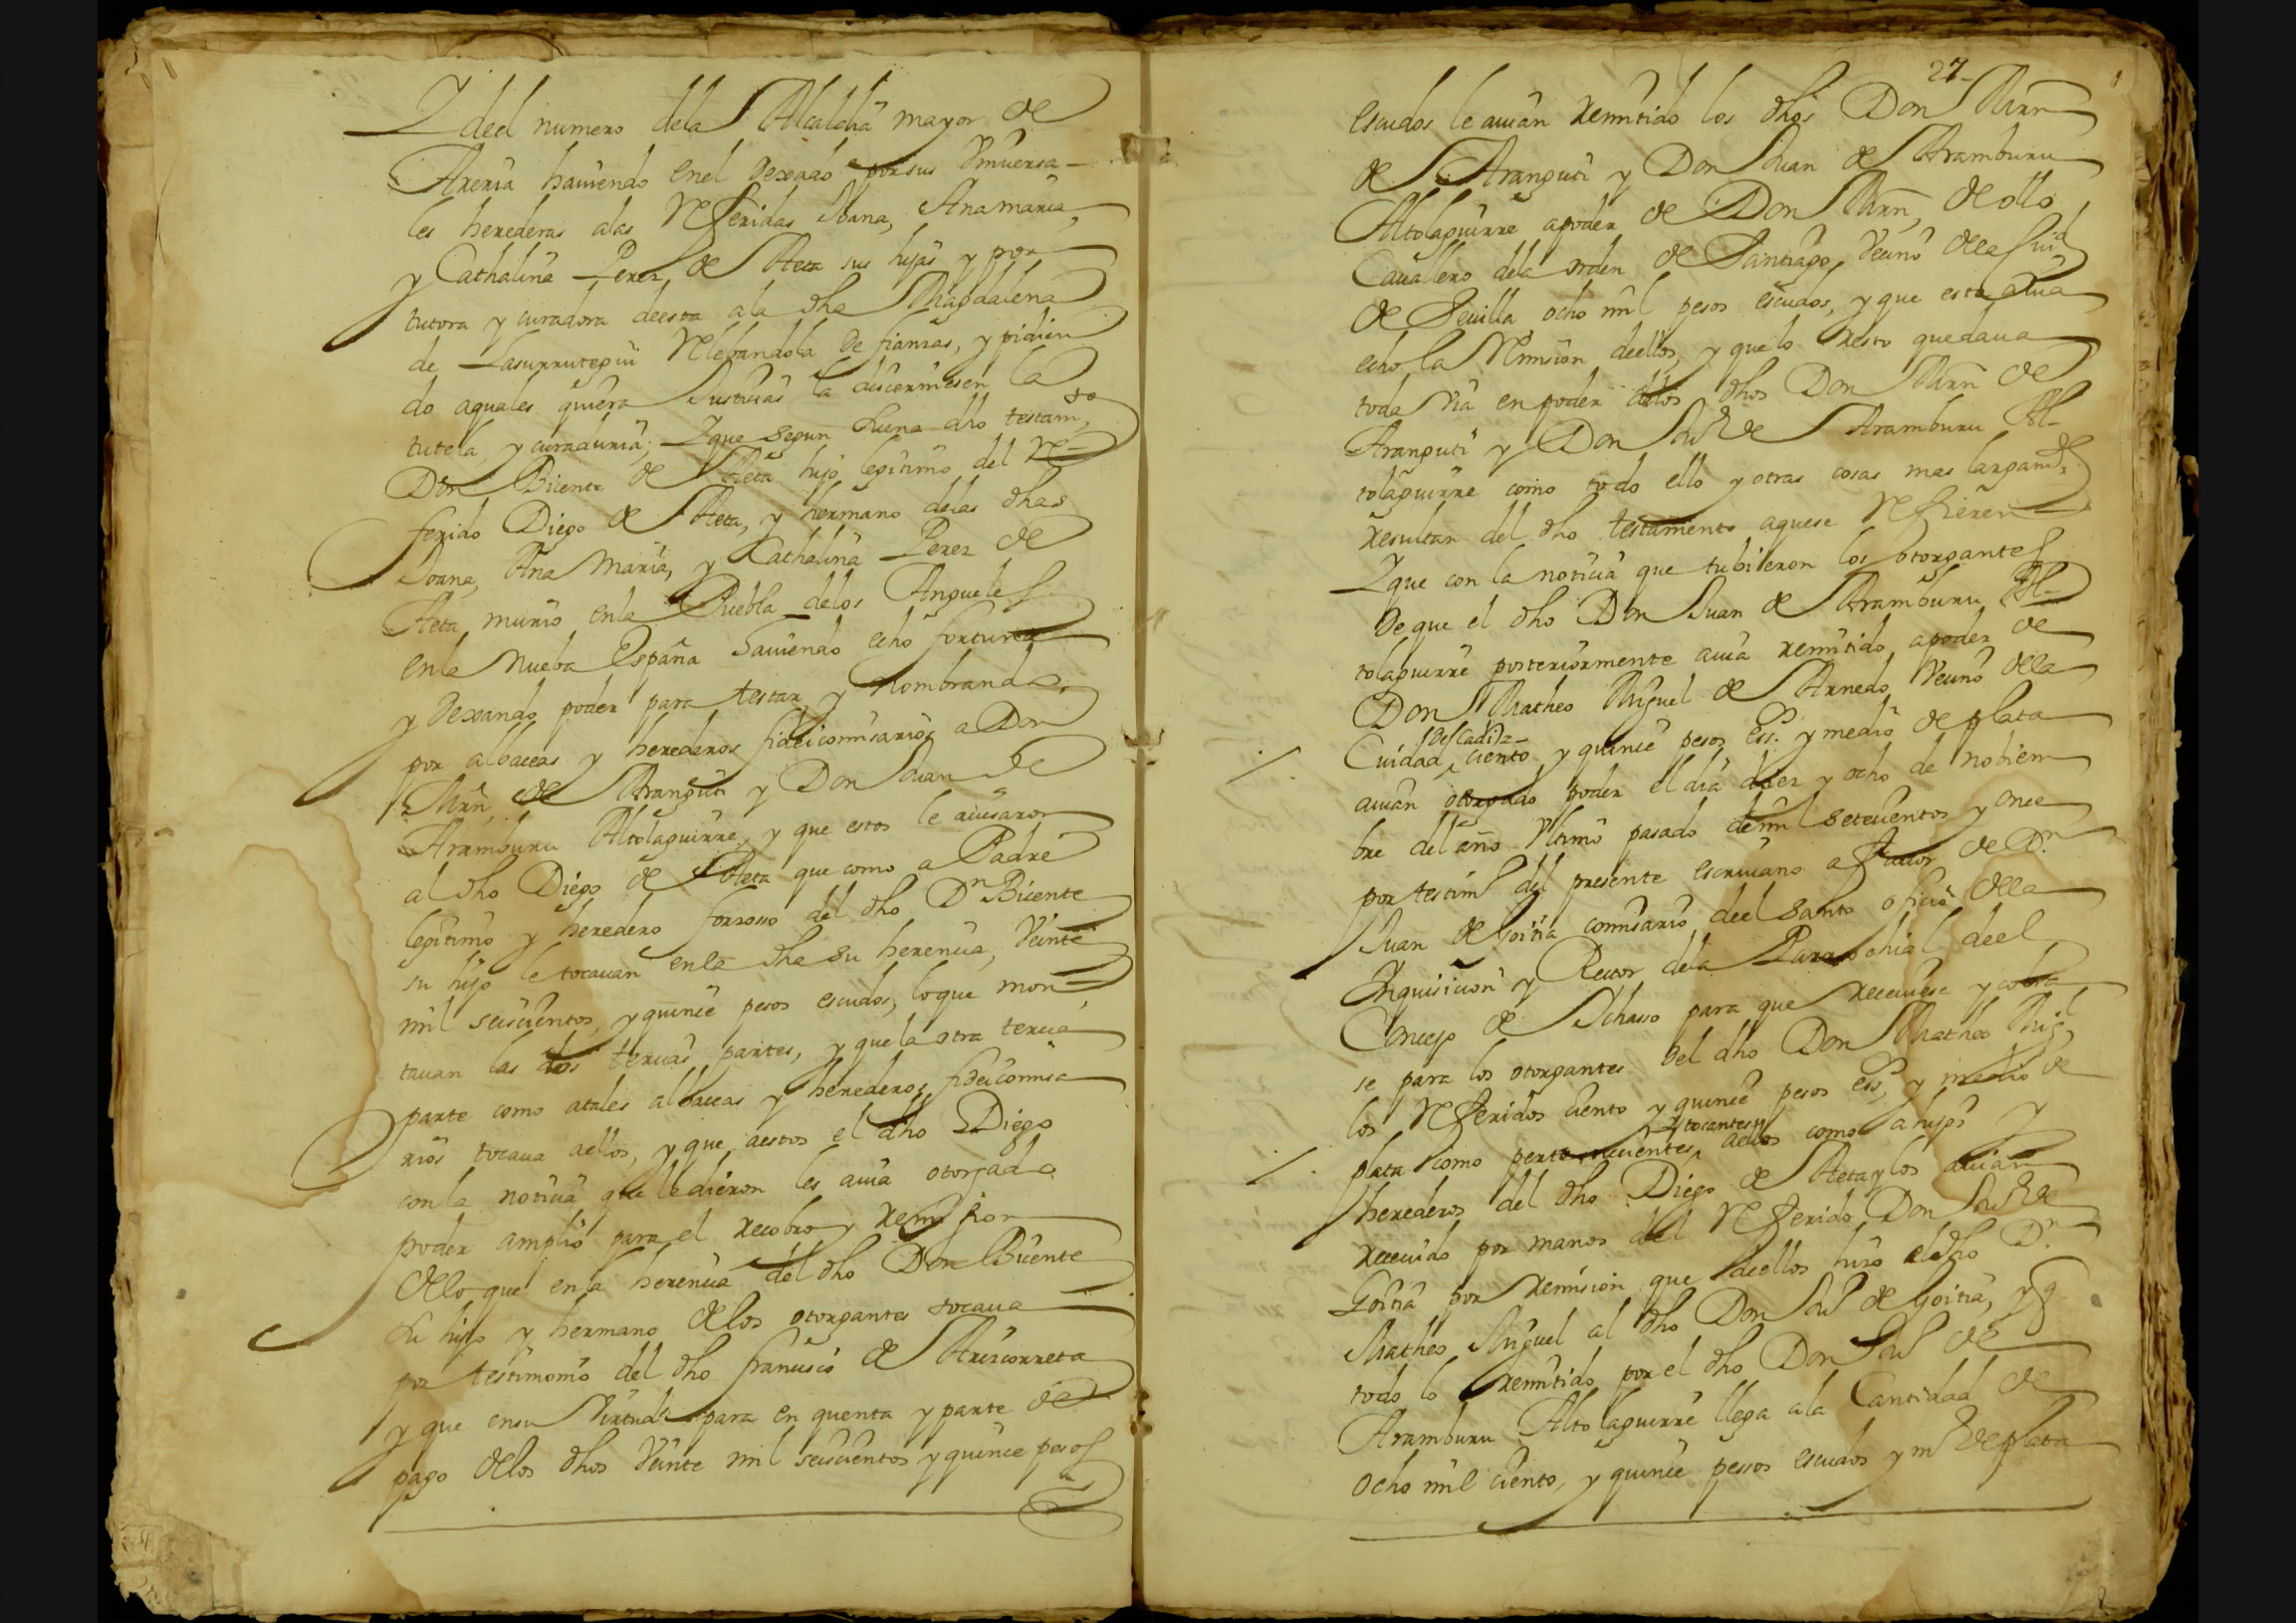 Y deel numero dela Alcaldia mayor de
Areria haviendo enel dexado por sus Vniversa-
les herederas alas Referidas Joana, Ana maria,
y Cathalina Perez de Aeta sus hijas y por
tutora y curadora deesta ala dha Magdalena
de Lasurrutegui Relebandola de fianzas, y pidien
do aquales quiera Justicias la discerniesen la
tutela, y curaduria; Y que segun suena dho testamto
Don Bicente de Aeta hijo legitimo del Re-
ferido Diego de Aeta, y hermano delas dhas
Joana, Ana Maria, y Cathalina Perez de
Aeta murio enla Puebla delos Angueles
enla Nueba España haviendo echo fortuna
y dexando poder para testar y nombrando
por albaceas y herederos fideicomisarios a Don
Mrn de Aranguti y Don Juan de
Aramburu Altolaguirre, y que estos le avisaron
al dho Diego de Aeta que como a Padre
legitimo y heredero forzosso del dho Dn Bicente
su hijo le tocavan enla dha su herencia, Veinte
mil seiscientos, y quince pesos escudos, loque mon-
tavan las dos tercias partes, y quela otra tercia
parte como atales albaceas y herederos fideicomisa
rios tocava aellos, y que aestos el dho Diego
conla noticia que le dieron les avia otorgado
poder amplio para el recobro y remision
delo que enla herencia del dho Don Bicente
su hijo y hermano delos otorgantes tocava
por testimonio del dho francisco de Arizcorreta
y que ensu Virtud para en quenta y parte de
pago delos dhos Veinte mil seiscientos y quince pesos
27
escudos le avian remitido los dhos Don Mrn
de Aranguti y Don Juan de Aramburu
Altolaguirre apoder de Don Mrn, de ollo
Cavallero dela orden de Santiago, Vecino dela Ciud
de Sevilla ocho mil pesos escudos, y que esta avia
echo la Remision deellos, y quelo resto quedava
toda via enpoder delos dhos Don Mrn de
Aranguti y Don Jun de Aramburu Al-
tolaguirre como todo ello y otras cosas mas largamte
resultan del dho testamento aquese Refieren
Y que con la noticia que tubieron los otorgantes
de que el dho Don Juan de Aramburu Al-
tolaguirre posteriormente avia remitido apoder de
Don Matheo Miguel de Arnedo Vecino dela
deCadiz-
Cuidad ciento y quince pesos ess. y medio de plata
avian otorgado poder eldia diez y ocho de nobiem
bre del año Vltimo pasado demil setecientos y once
por testimo del presente escrivano a favor de Dn
Juan de Goitia comisario deel santo oficio dela
Inquisicion y Rector dela Parrochial deel
Concejo de Ichaso para que reciviese y cobra
se para los otorgantes del dho Don Matheo Migl
los Referidos ciento y quince pesos ess, y medio de
y tocantes
plata como pertenecientes aellos como ahijos y
herederos del dho Diego de Aeta y los avian
recivido por manos del Referido Don Jun de
Goitia por remision que deellos hizo eldho Dn
Matheo Miguel al dho Don Jun de Goitia, y q
todo lo remitido por el dho Don Jun de
Aramburu Altolaguirre llega ala Cantidad de
ocho mil ciento, y quince pessos escudos y mo de plata